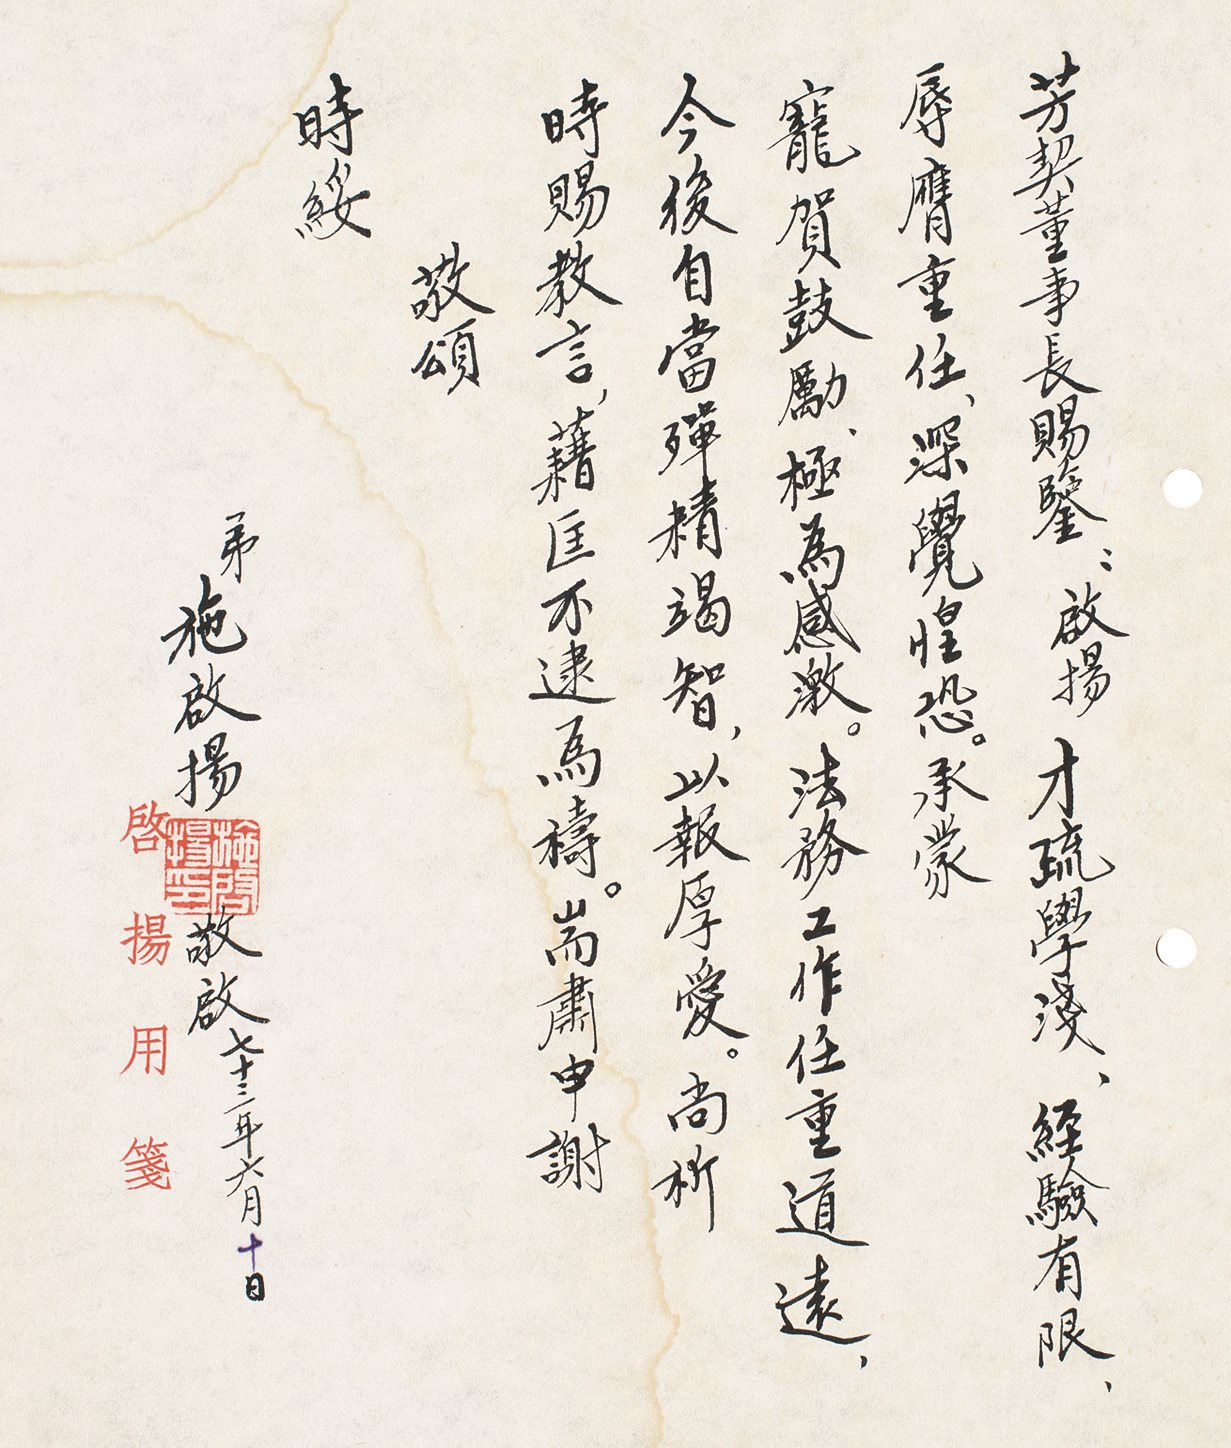 芳契董事長賜鑒：啟揚 才疏學淺、經驗有限、
辱膺重任、深覺惶恐。承蒙
寵賀鼓勵、極為感激。法務工作任重道遠，
今後自當殫精竭智，以報厚愛。尚祈
時賜教言，藉匡不逮為禱。耑肅申謝
敬頌
時綏
弟 施啟揚 敬啟 七十三年六月十日
施啟揚印
啓揚用箋